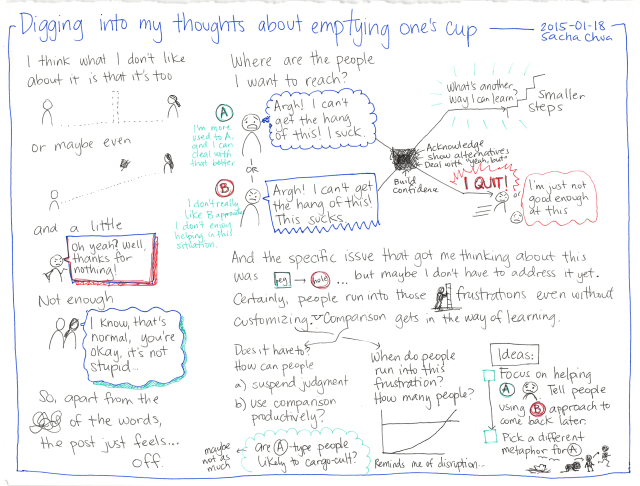 Digging into my thoughts about emptying one's cup
2015-01-18
Sacha Chua
I think what I don't like
about it is that it's too
or maybe even
and a little
Oh yeah? Well,
thanks for
nothing!
Not enough
I know, that's
normal, you're
okay, it's not
stupid...
So, apart from the
of the words,
the post just feels...
off.
Where are the people
I want to reach?
A
I'm more
used to A,
and I can
deal with
that better.
Argh! I can't
get the hang
of this! I suck.
OR
B
I don't really
like B approach,
I don't enjoy
helping in this
situation.
Argh! I can't get
the hang of this!
This sucks.
What's another
way I can learn?
Smaller
steps
Acknowledge
show alternatives
Deal with "yeah, but"
Build
confidence
I QUIT!
or
I'm just not
good enough
at this
And the specific issue that got me thinking about this
was peg → hole ... but maybe I don't have to address it yet.
Certainly, people run into those frustrations even without
customizing. Comparison gets in the way of learning.
Does it have to?
How can people
a) suspend judgment
b) use comparison
productively?
maybe
not as
much
are A-type people
likely to cargo-cult?
When do people
run into this
frustration?
How many people?
Reminds me of disruption...
Ideas:
Focus on helping
A Tell people
using B approach to
come back later.
Pick a different
metaphor for A